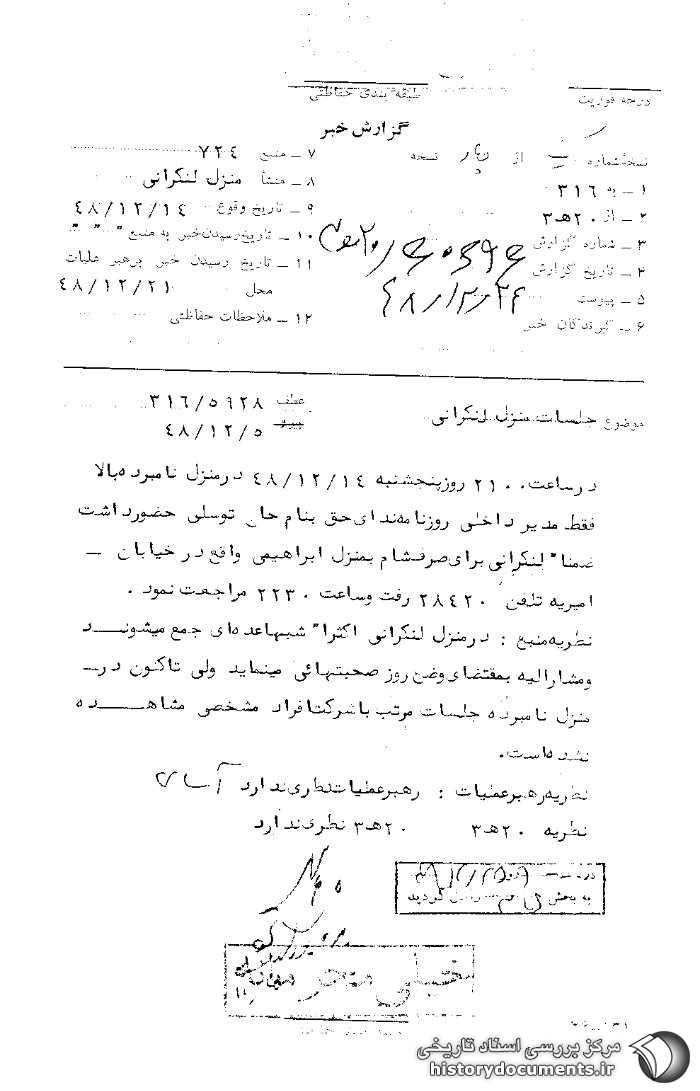 درجه فوریت
طبقه بندی حفاظتی
گزارش خبر
نسخه شماره از چهار نسخه
۱ ـ به ۳۱۶
۲ ـ از ۲۰هـ۳
۳ ـ شماره گزارش
۴ ـ تاریخ گزارش ۴۸/۱۲/۲۴
۵ ـ پیوست
۶ ـ گیرندگان خبر
۷ ـ منبع ۷۲۴
۸ ـ منشأ منزل لنکرانی
۹ ـ تاریخ وقوع ۴۸/۱۲/۱۴
۱۰ ـ تاریخ رسیدن خبر به منبع " " "
۱۱ ـ تاریخ رسیدن خبر برهبر عملیات
محل ۴۸/۱۲/۲۱
۱۲ ـ ملاحظات حفاظتی
موضوع جلسات منزل لنکرانی
عطف ۳۱۶/۵۹۲۸
پیرو ۴۸/۱۲/۵
درساعت ۲۱۰۰ روزپنجشنبه ۴۸/۱۲/۱۴ درمنزل نامبرده بالا
فقط مدیر داخلی روزنامه ندای حق بنام حاج توسلی حضورداشت
ضمنا" لنکرانی برای صرف شام بمنزل ابراهیمی واقع در خیابان ـ
امیریه تلفن ۲۸۴۲۰ رفت وساعت ۲۲۳۰ مراجعت نمود .
نظریه منبع : درمنزل لنکرانی اکثرا" شبها عده ای جمع میشونـــد
ومشارالیه بمقتضای وضع روز صحبتهائی مینماید ولی تاکنون درـ
منزل نامبرده جلسات مرتب با شرکت افراد مشخصی مشاهـــده
نشده است.
نظریه رهبرعملیات : رهبرعملیات نظری ندارد
نظریه ۲۰هـ۳ ۲۰هـ۳ نظری ندارد
به بخش گردید
خیلی محرمانه
مرکز بررسی اسناد تاریخی
historydocuments.ir